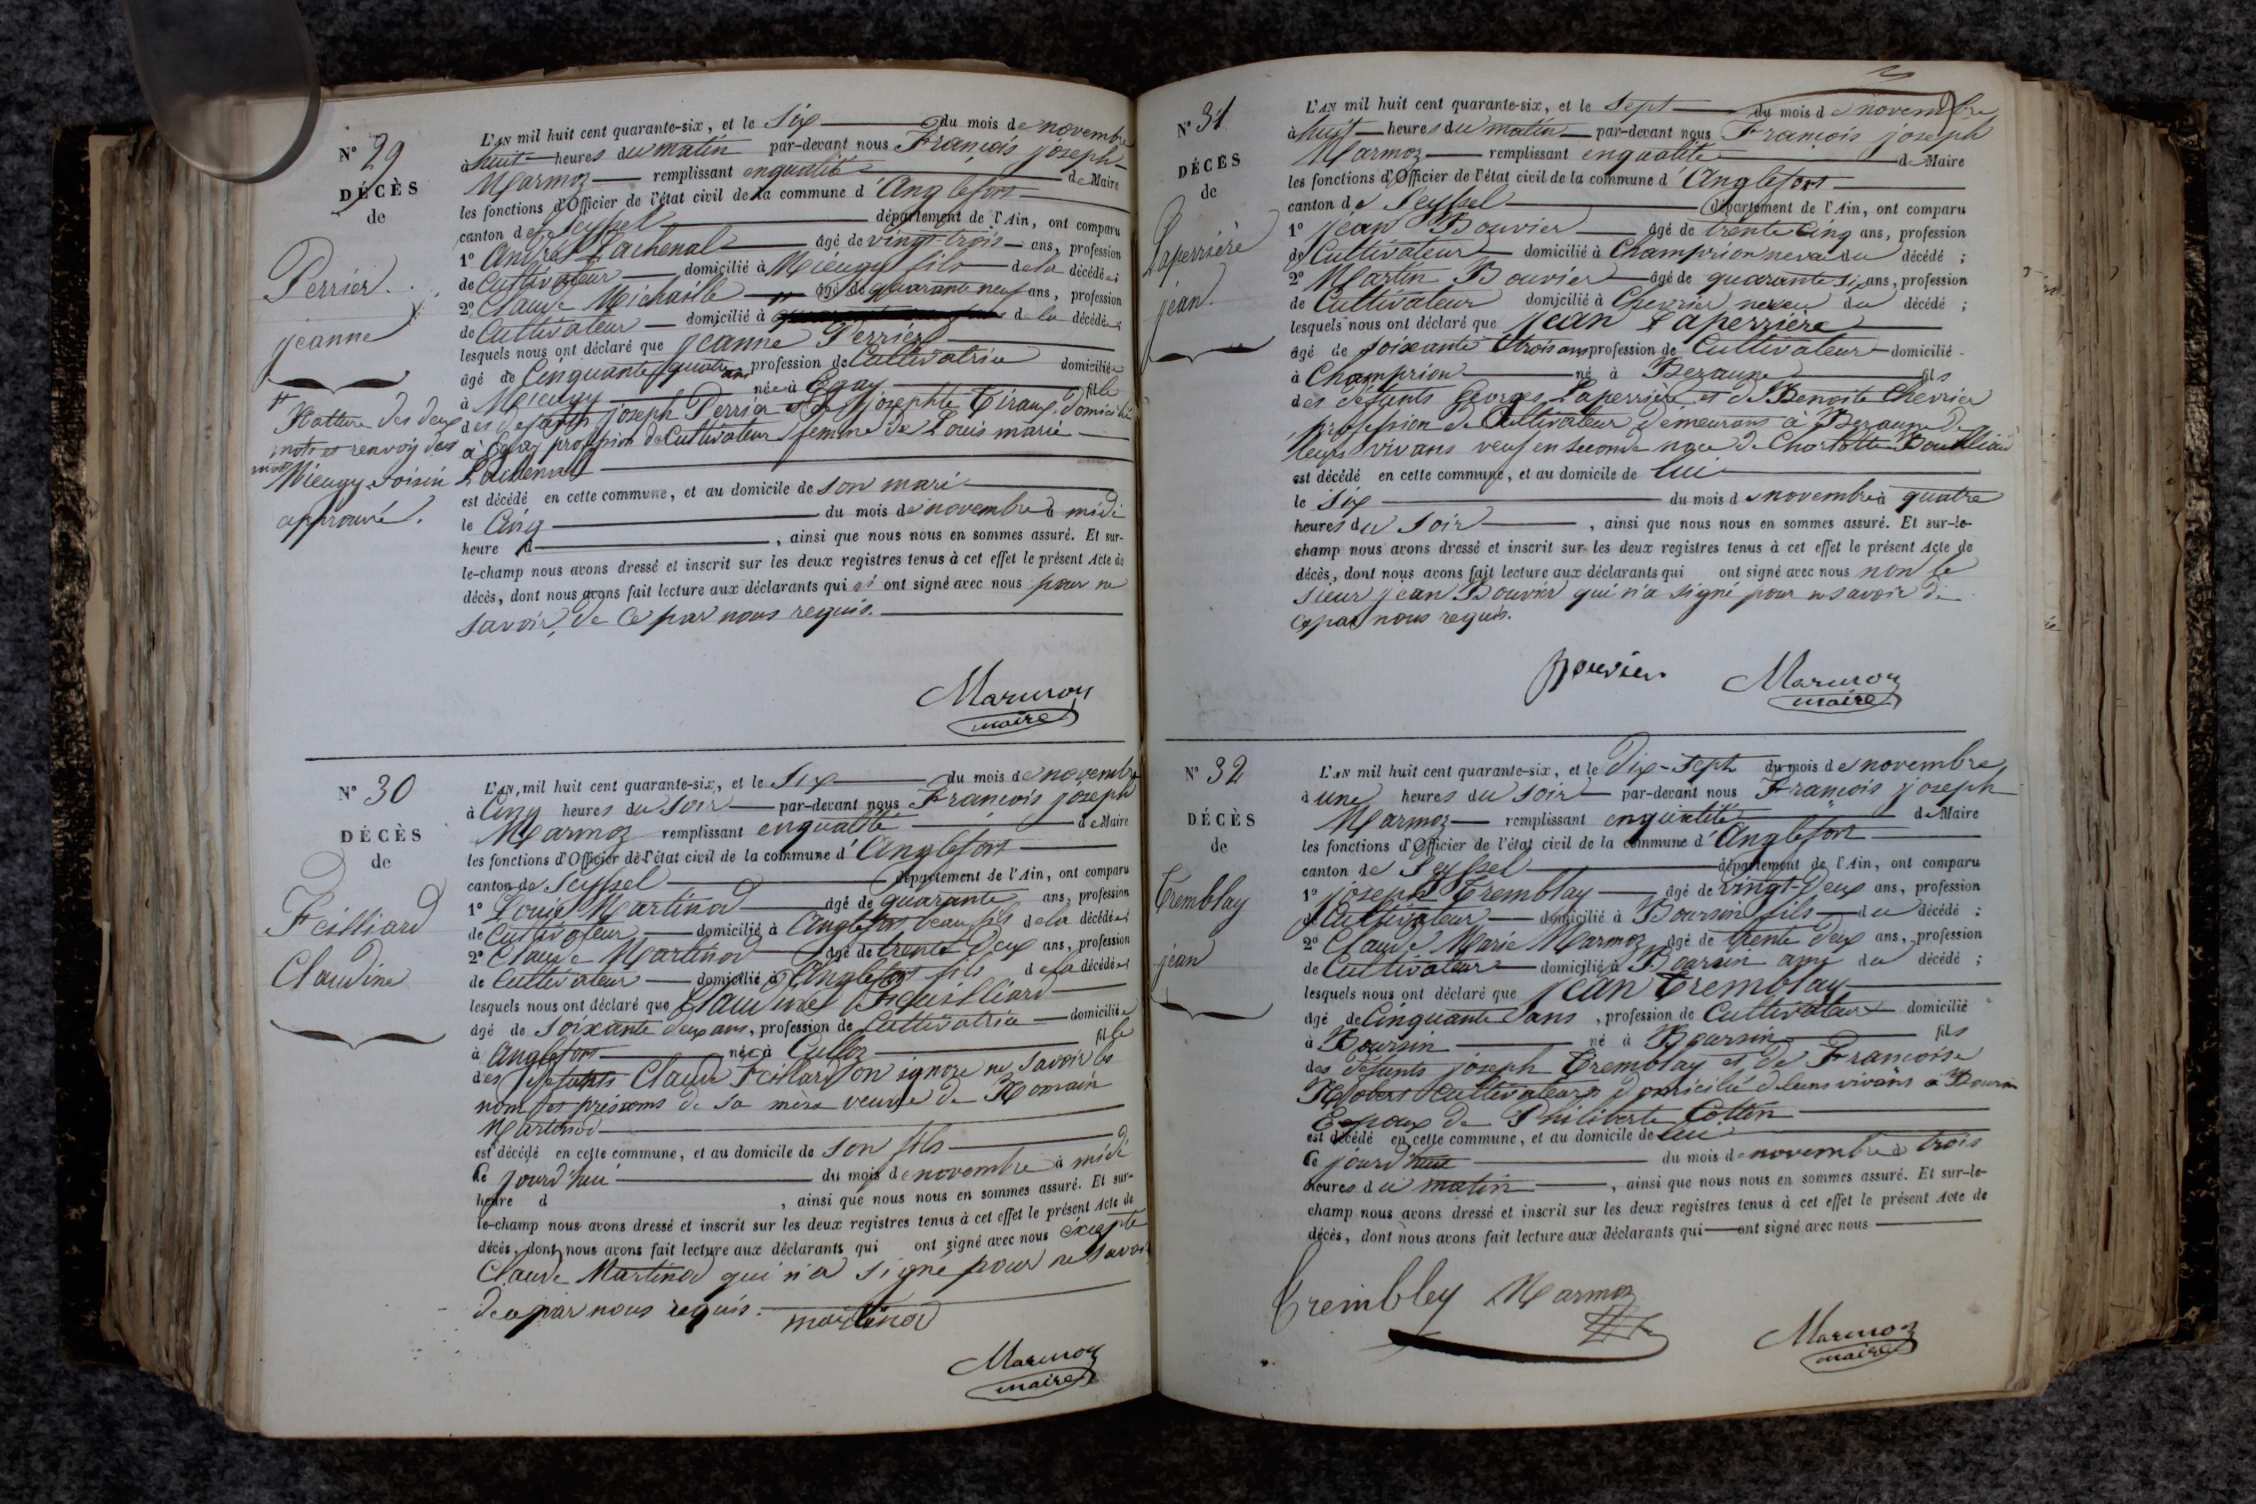 N° 29
DÉCÈS
de
Perrier
jeanne
Rature des deux
mots et renvoy des
mots
Mieugy voisin
approuvé.
L'AN mil huit cent quarante-six, et le Six du mois de novembre
à huit heures du matin par-devant nous François joseph
Marmoz remplissant enqualité de Maire
les fonctions d'Officier de l'état civil de la commune d'Anglefort
canton de Seyssel département de l'Ain, ont comparu
1° André Lachenal âgé de vingt trois ans, profession
de Cultivateur domicilié à Mieugy fils de la décédée;
2° Claude Michaille âgé de quarante neuf ans, profession
de Cultivateur domicilié à de la décédée;
lesquels nous ont déclaré que jeanne Perrier
âgé de Cinquante quatre ans profession de Cultivatrice domiciliée
à Mieugy née à fille
des défunts joseph Perrier et de josephte domicilié
à profession de Cultivateur femme de Louis marie
Lachenal
est décédé en cette commune, et au domicile de son mari
le Cinq du mois de novembre à midi
heure d , ainsi que nous nous en sommes assuré. Et sur-
le-champ nous avons dressé et inscrit sur les deux registres tenus à cet effet le présent Acte de
décès, dont nous avons fait lecture aux déclarants qui n' ont signé avec nous pour ne
savoir, de ce par nous requis.
Marmoz
maire
N° 30
DÉCÈS
de
Feilliard
Claudine
L'AN mil huit cent quarante-six, et le Six du mois de novembre
à Cinq heures du Soir par-devant nous François joseph
Marmoz remplissant enqualité de Maire
les fonctions d'Officier de l'état civil de la commune d'Anglefort
canton de Seyssel département de l'Ain, ont comparu
1° Louis Martinod âgé de quarante ans, profession
de Cultivateur domicilié à Anglefort beau fils de la décédée;
2° Claude Martinod âgé de trente deux ans, profession
de Cultivateur domicilié à Anglefort fils de la décédée;
lesquels nous ont déclaré que Claudine Feilliard
âgé de Soixante deux ans, profession de Cultivatrice domiciliée
à Anglefort née à Culloz fille
des défunts Claude Feillard on ignore ne savoir les
nom et prénoms de sa mère veuve de Romain
Martinod
est décédé en cette commune, et au domicile de son fils
Ce jourd'hui du mois de novembre à midi
heure d , ainsi que nous nous en sommes assuré. Et sur-
le-champ nous avons dressé et inscrit sur les deux registres tenus à cet effet le présent Acte de
décès, dont nous avons fait lecture aux déclarants qui ont signé avec nous excepté
Claude Martinod qui n'a signé pour ne savoir
de ce par nous requis.
martinod
Marmoz
maire
N° 31
DÉCÈS
de
Laperrière
jean
L'AN mil huit cent quarante-six, et le Sept du mois de novembre
à huit heures du matin par-devant nous François joseph
Marmoz remplissant enqualité de Maire
les fonctions d'Officier de l'état civil de la commune d'Anglefort
canton de Seyssel département de l'Ain, ont comparu
1° jean Bouvier âgé de trente Cinq ans, profession
de Cultivateur domicilié à Champrion neveu du décédé;
2° Martin Bouvier âgé de quarante six ans, profession
de Cultivateur domicilié à Chevrier neveu du décédé;
lesquels nous ont déclaré que jean Laperrière
âgé de soixante trois ans profession de Cultivateur domicilié
à Champrion né à Bezaune fils
des défunts Georges Laperrière et de Benoite Chevrier
profession de Cultivateur demeurans à Bezaune de
leurs vivans veuf en seconde noce de Charlotte
est décédé en cette commune, et au domicile de lui
le six du mois de novembre à quatre
heures du Soir , ainsi que nous nous en sommes assuré. Et sur-le-
champ nous avons dressé et inscrit sur les deux registres tenus à cet effet le présent Acte de
décès, dont nous avons fait lecture aux déclarants qui ont signé avec nous non le
Sieur jean Bouvier qui n'a signé pour ne savoir de
Ce par nous requis.
Bouvier Marmoz
maire
N° 32
DÉCÈS
de
Tremblay
jean
L'AN mil huit cent quarante-six, et le Dix-Sept du mois de novembre
à une heures du soir par-devant nous François joseph
Marmoz remplissant enqualité de Maire
les fonctions d'Officier de l'état civil de la commune d'Anglefort
canton de Seyssel département de l'Ain, ont comparu
1° joseph Tremblay âgé de vingt-deux ans, profession
de Cultivateur domicilié à Boursin fils du décédé;
2° Claude Marie Marmoz âgé de trente deux ans, profession
de Cultivateur domicilié à Boursin ami du décédé;
lesquels nous ont déclaré que jean Tremblay
âgé de Cinquante ans, profession de Cultivateur domicilié
à Boursin né à Boursin fils
des défunts joseph Tremblay et de Françoise
Robert Cultivateurs domicilié de leurs vivans à Boursin
Epoux de Philiberte Cottin
est décédé en cette commune, et au domicile de lui
Ce jourd'hui du mois de novembre à trois
heures du matin , ainsi que nous nous en sommes assuré. Et sur-le-
champ nous avons dressé et inscrit sur les deux registres tenus à cet effet le présent Acte de
décès, dont nous avons fait lecture aux déclarants qui ont signé avec nous
Trembley Marmoz
Marmoz
maire